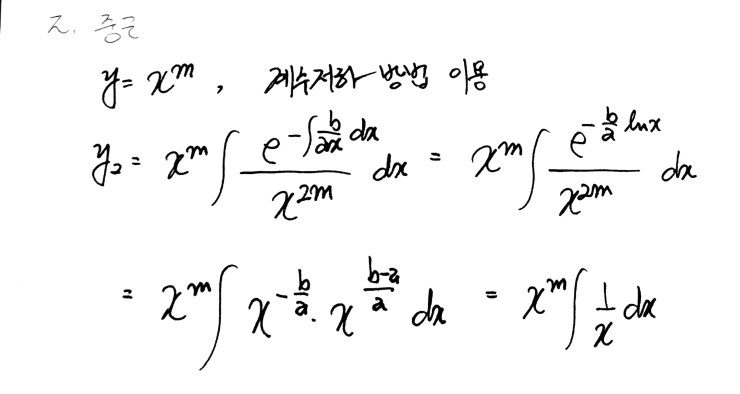 2. 중근
y = x^m , 계수저하 방법 이용
y₂ = x^m ∫ \frac{e^{-∫\frac{b}{ax}dx}}{x^{2m}} dx = x^m ∫ \frac{e^{-\frac{b}{a}lnx}}{x^{2m}} dx
= x^m ∫ x^{-\frac{b}{a}} · x^{\frac{b-a}{a}} dx = x^m ∫ \frac{1}{x} dx